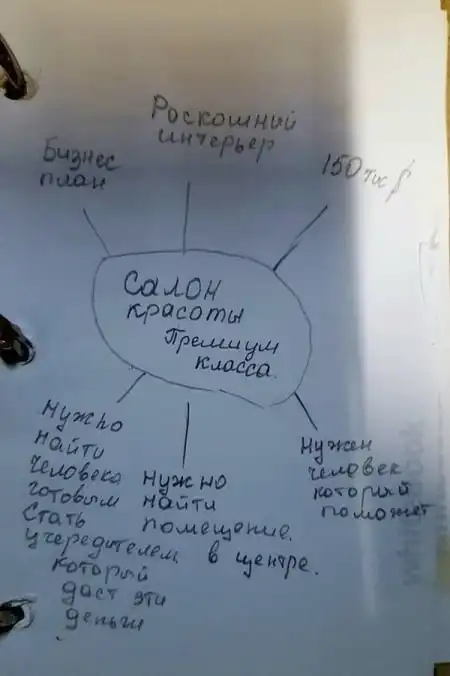 Роскошний
интерьер
Бизнес
план
150 тыс $
Салон
красоты
Премиум
класса.
Нужно
найти
человека
готовым
стать
учередителем
который
даст эти
деньги
Нужно
найти
помещение
в центре.
Нужен
человек
который
поможет